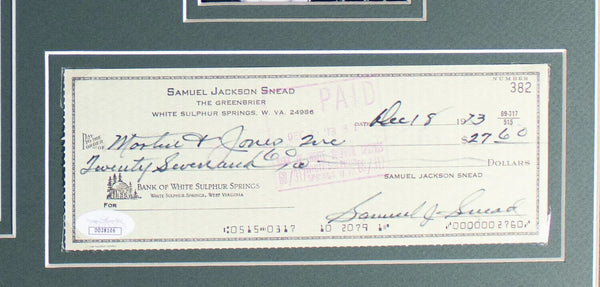 NUMBER
382
SAMUEL JACKSON SNEAD
THE GREENBRIER
WHITE SULPHUR SPRINGS, W. VA. 24986
PAID
DATE Dec 18 1973
69-317
515
PAY TO THE ORDER OF Martin & Jones Inc $27.60
Twenty Seven and 60 DOLLARS
SAMUEL JACKSON SNEAD
BANK OF WHITE SULPHUR SPRINGS
WHITE SULPHUR SPRINGS, WEST VIRGINIA
FOR Samuel J. Snead
DD28106
⑆0515⑉0317⑆ 10 2079 1⑈ ⑈0000002760⑈